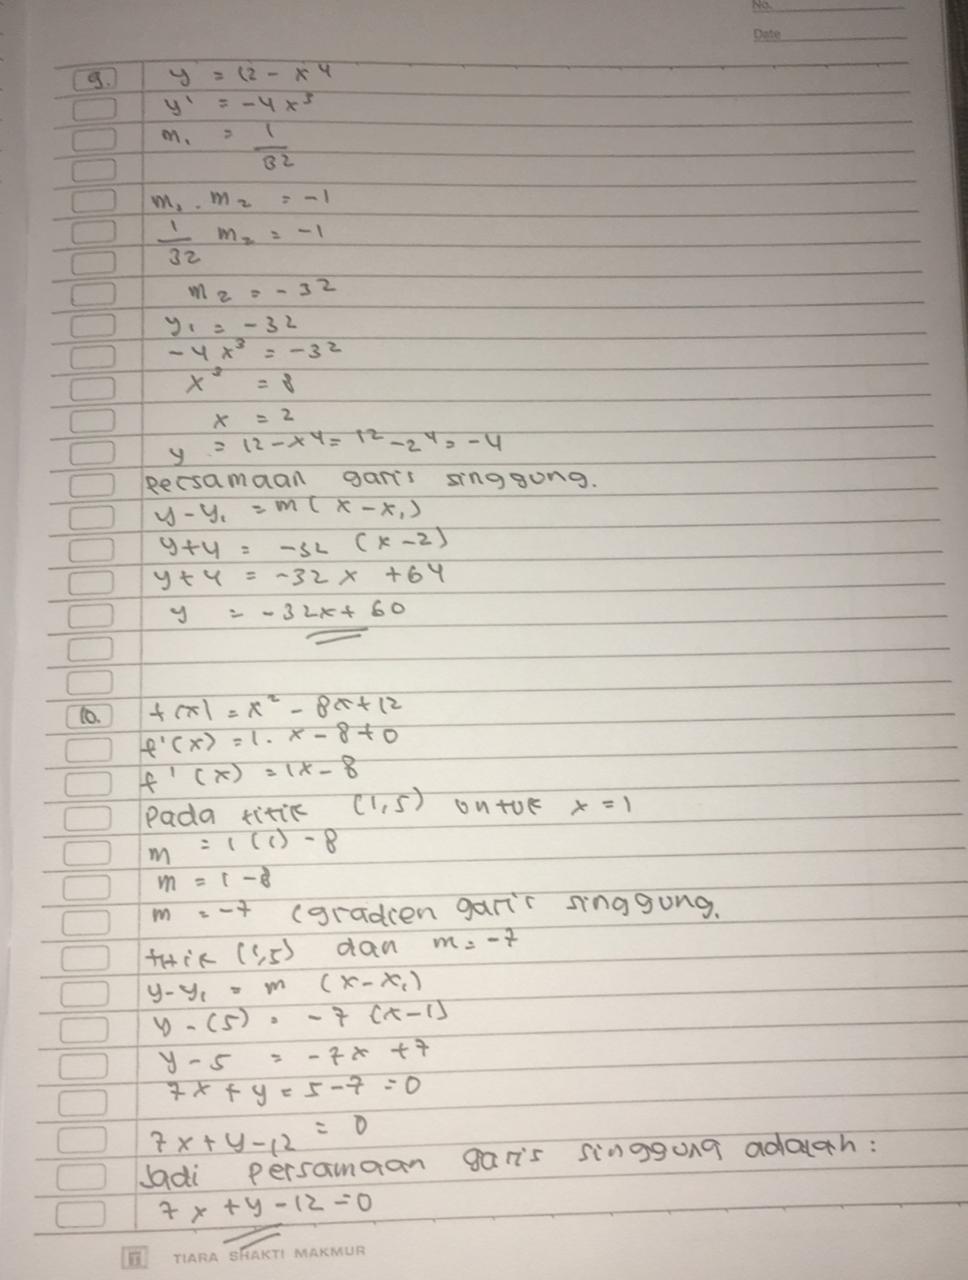 No.
Date
9. y = 12 - x⁴
y' = -4x³
m₁ = 1/32
m₁ . m₂ = -1
1/32 m₂ = -1
m₂ = -32
y₁ = -32
-4x³ = -32
x³ = 8
x = 2
y = 12 - x⁴ = 12 - 2⁴ = -4
Persamaan garis singgung.
y - y₁ = m (x - x₁)
y + 4 = -32 (x - 2)
y + 4 = -32x + 64
y = -32x + 60
10. f(x) = x² - 8x + 12
f'(x) = 1. x - 8 + 0
f'(x) = 1x - 8
Pada titik (1,5) untuk x = 1
m = 1(1) - 8
m = 1 - 8
m = -7 (gradien garis singgung.
titik (1,5) dan m = -7
y - y₁ = m (x - x₁)
y - (5) = -7 (x - 1)
y - 5 = -7x + 7
7x + y = 5 - 7 = 0
7x + y - 12 = 0
Jadi persamaan garis singgung adalah :
7x + y - 12 = 0
TIARA SHAKTI MAKMUR